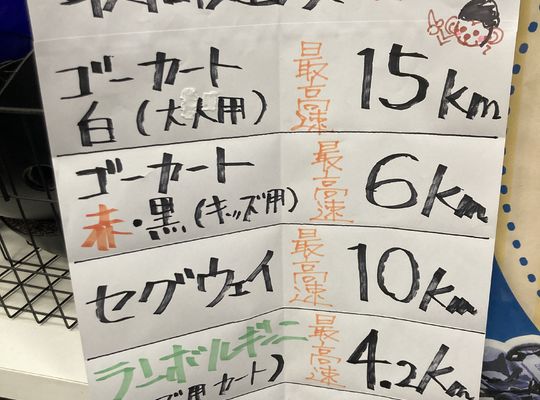 ゴーカート
白(大人用)
最高速
15km
ゴーカート
赤・黒(キッズ用)
最高速
6km
セグウェイ
最高速
10km
ランボルギーニ
用カート)
最高速
4.2km